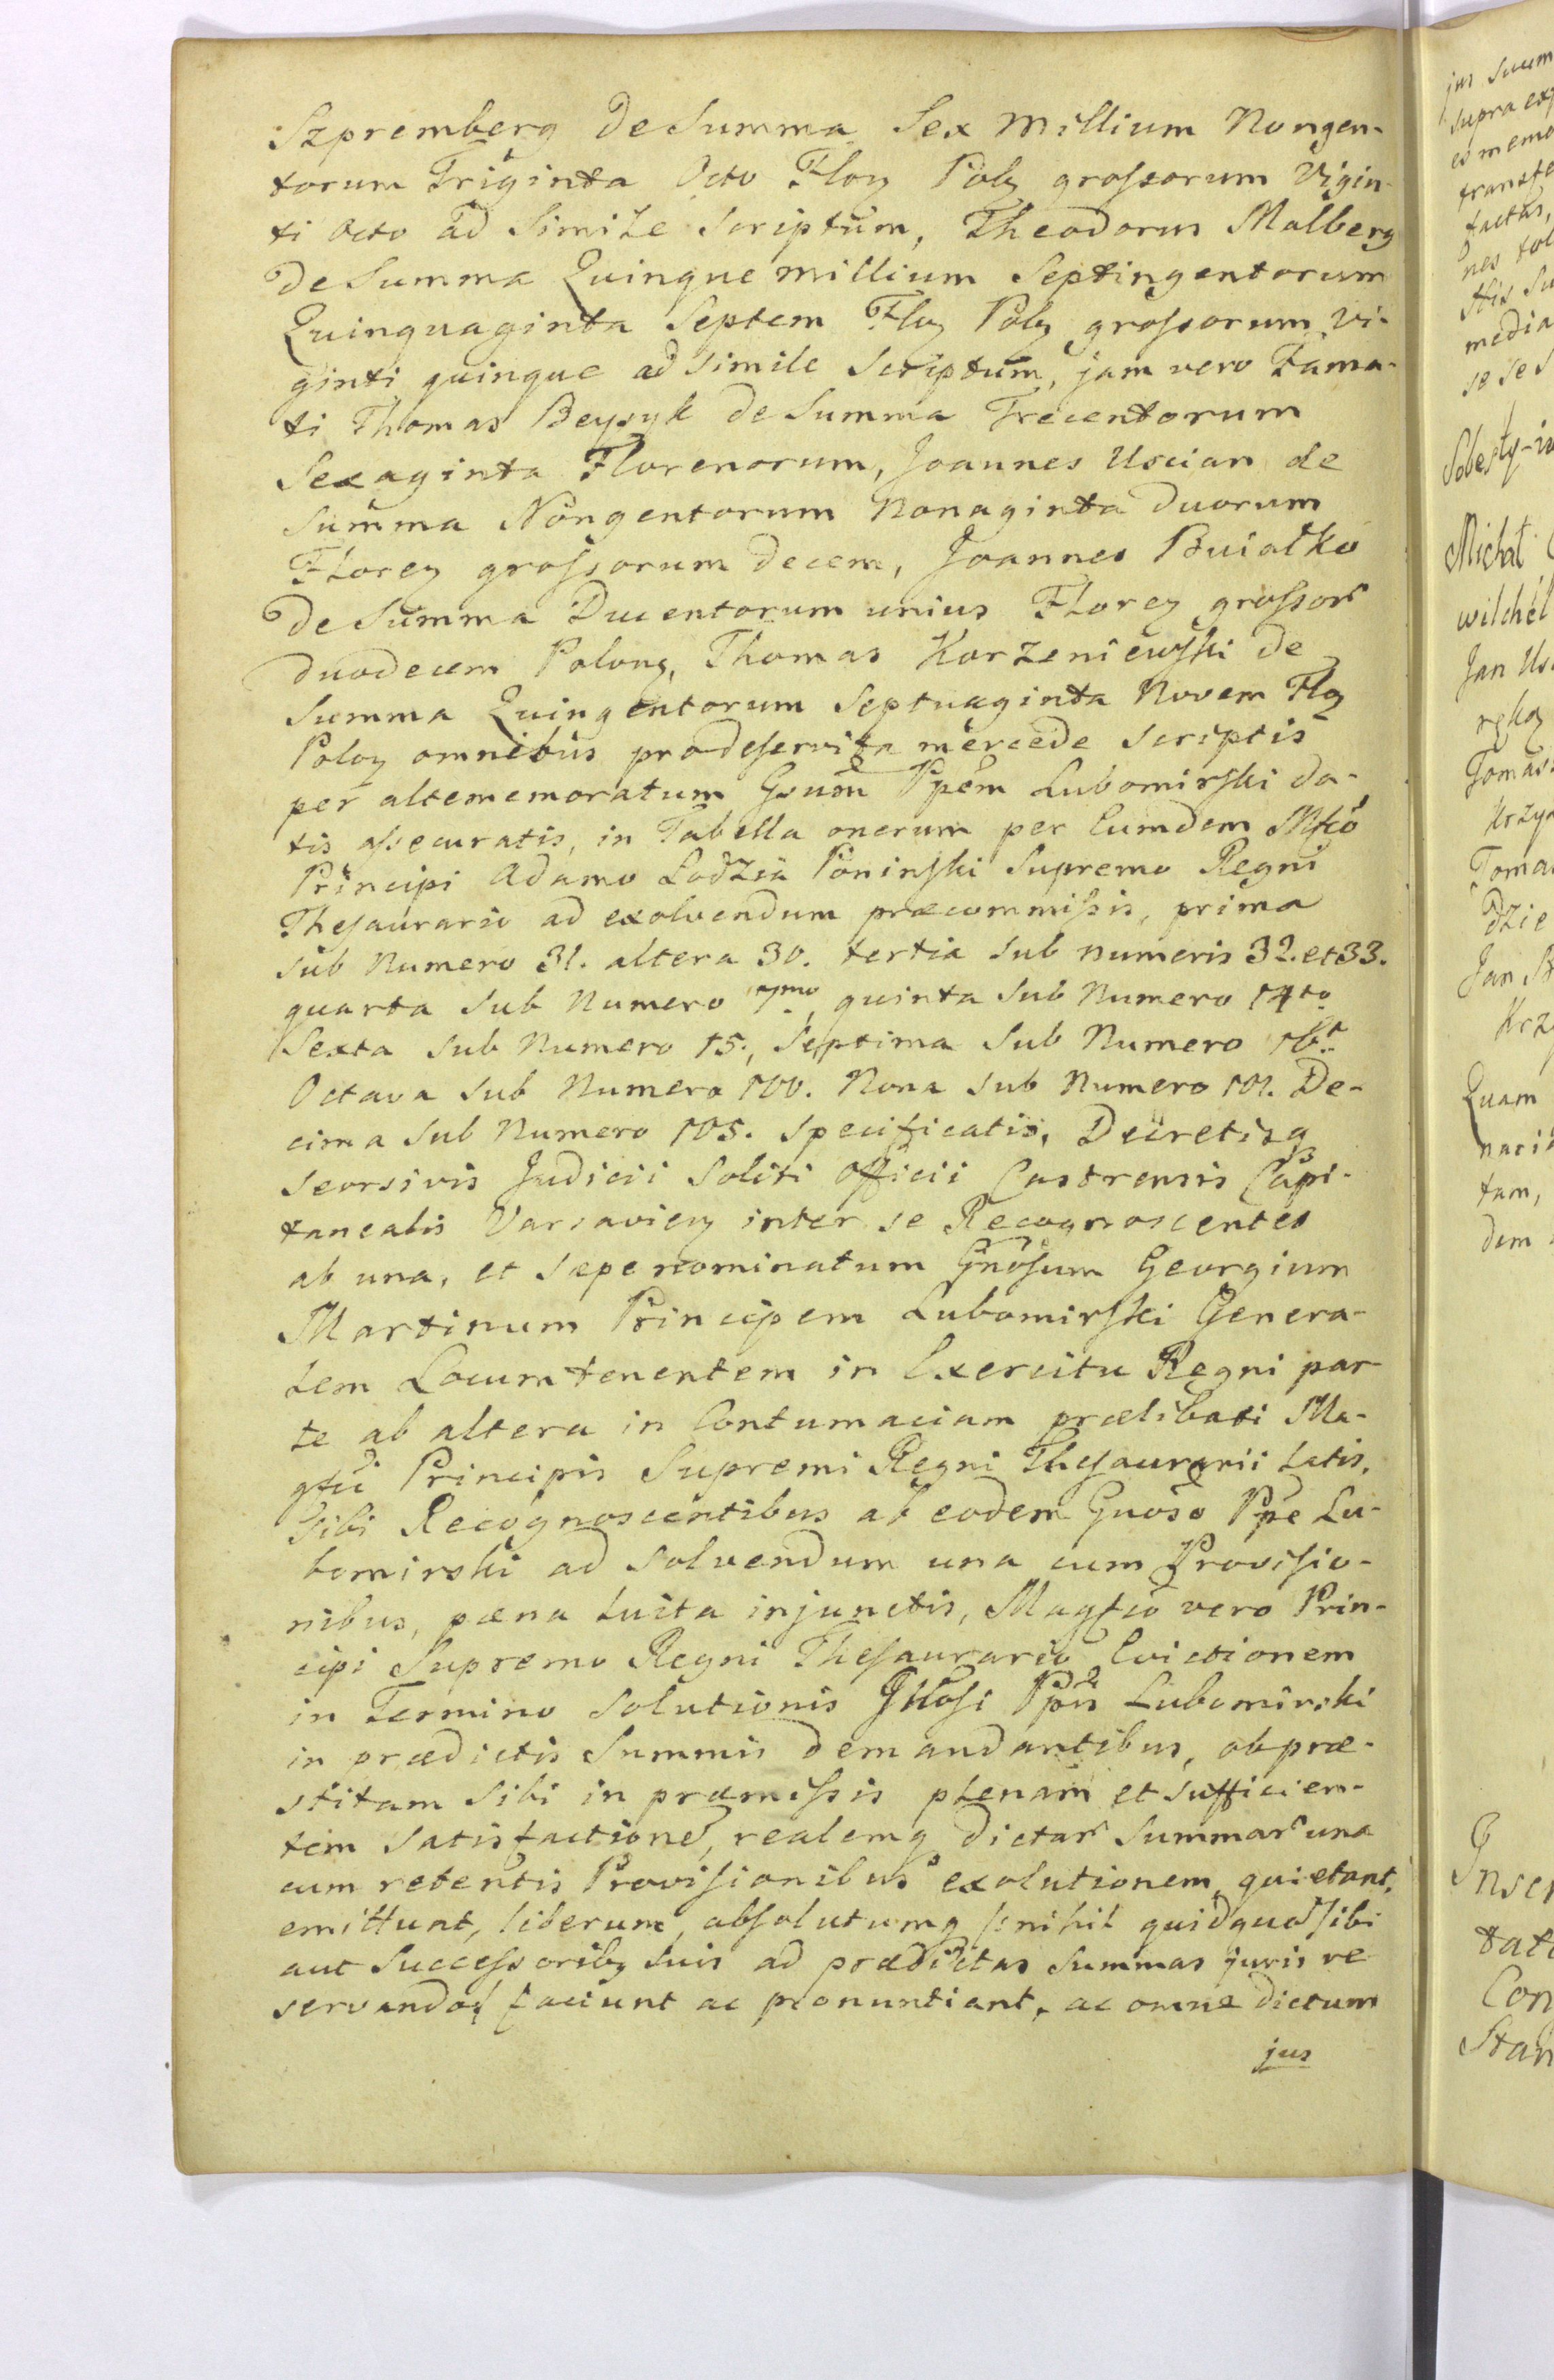 Szpremberg de Summa Sex Millium Nongen-
torum Triginta Octo Floz Polz grossorum Vigin-
ti Octo ad Simile Scriptum, Theodorus Malberg
de Summa Quinque millium Septingentorum
Quinquaginta Septem Floz Polz grossorum vi-
ginti quinque ad simile Scriptum, jam vero Fama-
ti Thomas Beysyk de Summa Trecentorum
Sexaginta Florenorum, Joannes Uscian de
Summa Nongentorum Nonaginta duorum
Florez grossorum decem, Joannes Buiałko
de Summa Ducentorum unius Florez grossor
duodecem Polonz, Thomas Korzeniewski de
Summa Quingentorum Septuaginta Novem Floz
Poloz omnibus pro deservita mercede scriptis
per altememoratum Gsum Ppem Lubomirski da-
tis assecuratis, in Tabella onerum per Eumdem Mfco
Principi Adamo Lodzia Poninski Supremo Regni
Thesaurario ad exolvendum præcommissis, prima
sub Numero 31. altera 30. tertia sub numeris 32. et 33.
quarta sub Numero 7mo, quinta sub Numero 14to
Sexta sub Numero 15., Septima sub Numero 16t.
Octava sub Numero 100. Nona sub Numero 101. De-
cima sub Numero 105. specificatis, Decretisq
seorsivis Judicii Soliti Officii Castrensis Capi-
tanealis Varsaviez inter se Recognoscentes
ab una, et sæpenominatum Gnosum Georgium
Martinum Principem Lubomirski Genera-
lem Locumtenentem in Exercitu Regni par-
te ab altera in Contumaciam prælibati Ma-
gfci Principis Supremi Regni Thesaurarii latis,
Sibi Recognoscentibus ab eodem Gnoso Ppe Lu-
bomirski ad solvendum una cum Provisio-
nibus, pæna luita injunctis, Magfco vero Prin-
cipi Supremo Regni Thesaurario Evictionem
in Termino solutionis Gnosi Ppis Lubomirski
in prædictis Summis demandantibus, ob præ-
stitam sibi in præmissis plenam et sufficien-
tem satisfactione, realemq dictar summar una
cum retentis Provisionibus exolutionem, quietant,
emittunt, liberum, absolutumq nihil quidquá sibi
aut Successoribz suis ad prædictas summas juris re
servandoq faciunt ac pronuntiant, ac omne dictum
jus
jus suum
supra
transfe
factas,
media
se se
Michał
wilchel
Jan
Tomasz
Krzy
Toma
dzie
Jan
Krz
Quam
tam,
dem